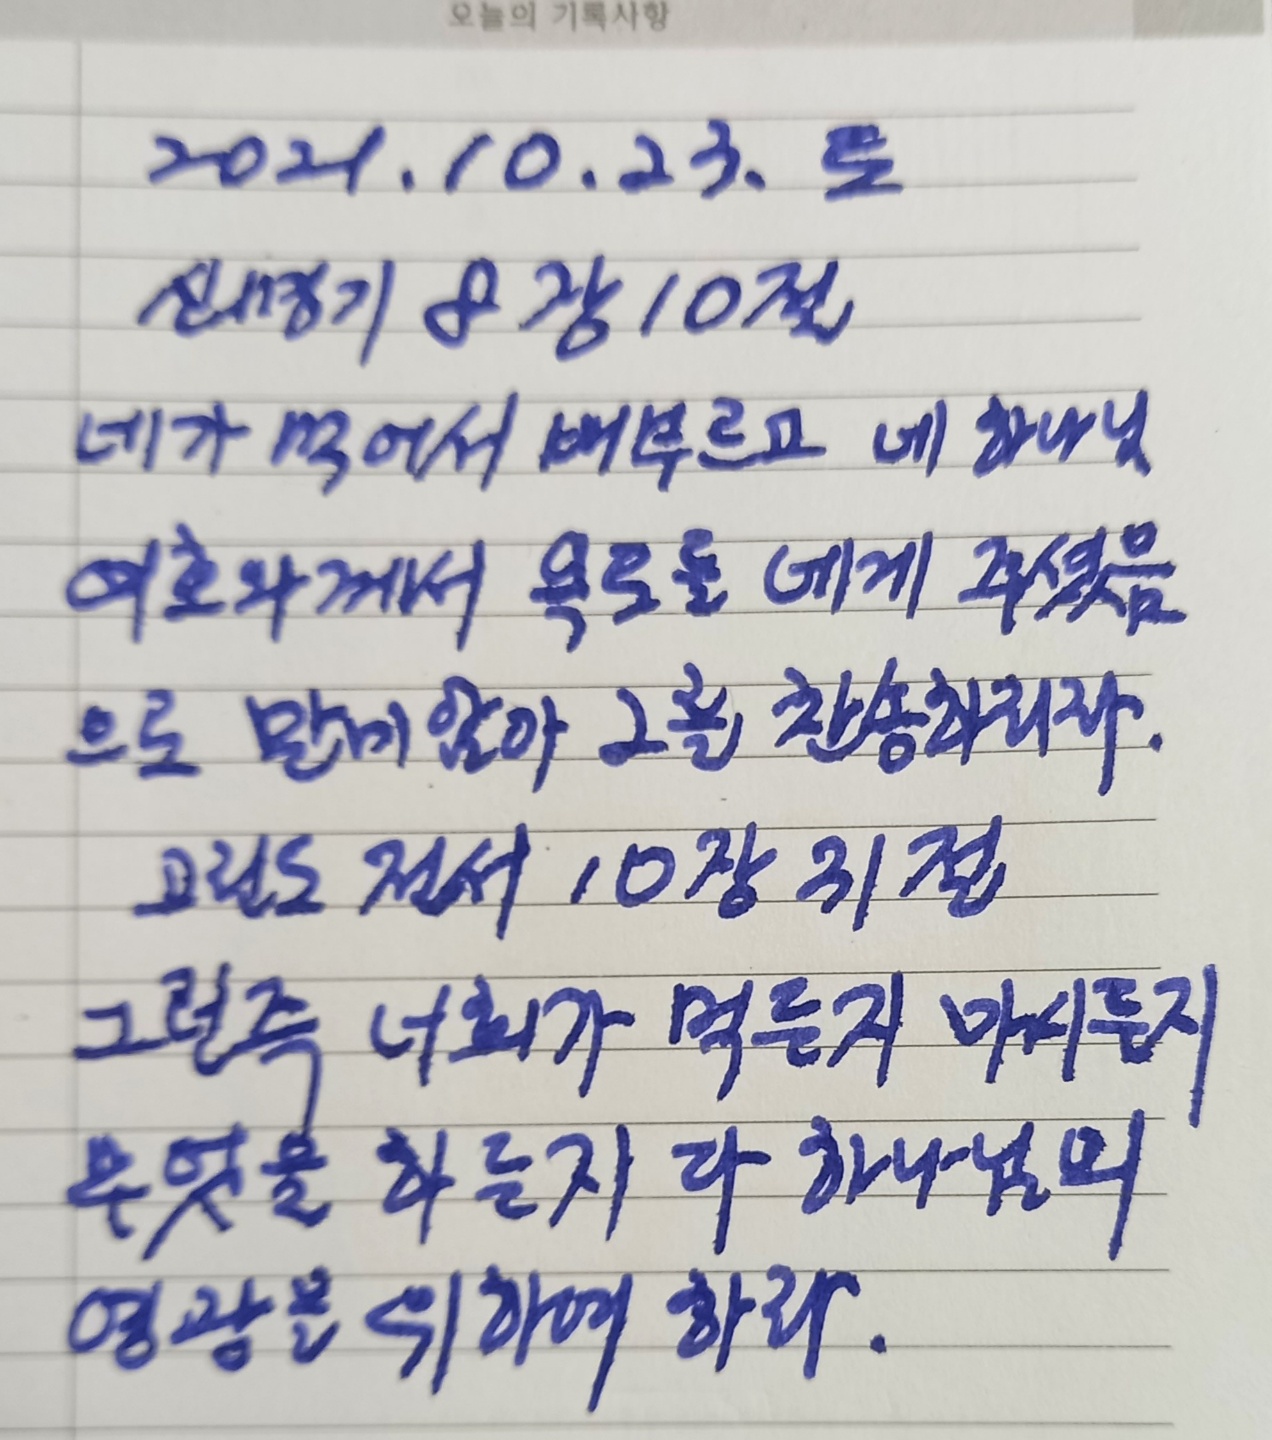 오늘의 기록사항
2021.10.23. 토
신명기 8장 10절
네가 먹어서 배부르고 네 하나님
여호와께서 옥토를 네게 주셨음
으로 말미암아 그를 찬송하리라.
고린도 전서 10장 31절
그런즉 너희가 먹든지 마시든지
무엇을 하든지 다 하나님의
영광을 위하여 하라.